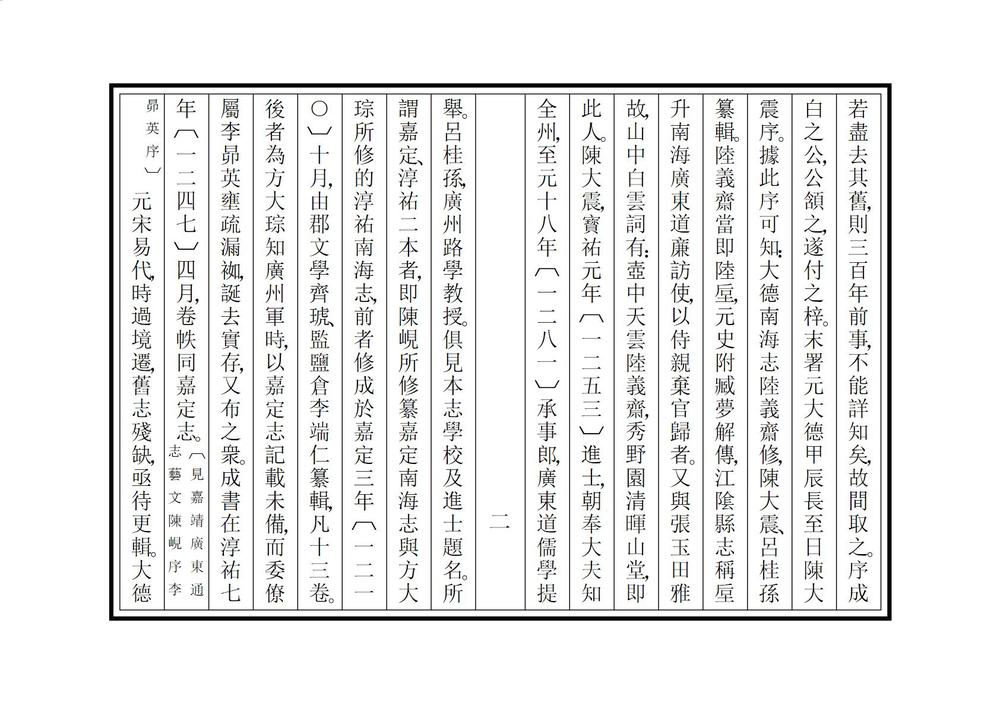 若盡去其舊,則三百年前事,不能詳知矣,故間取之。序成
白之公,公頷之,遂付之梓。末署元大德甲辰長至日陳大
震序。據此序可知:大德南海志陸義齋修,陳大震、呂桂孫
纂輯。陸義齋當即陸垕,元史附臧夢解傳,江陰縣志稱垕
升南海廣東道廉訪使,以侍親棄官歸者。又與張玉田雅
故,山中白雲詞有:壺中天雲陸義齋,秀野園清暉山堂,即
此人。陳大震,寶祐元年〔一二五三〕進士,朝奉大夫知
全州,至元十八年〔一二八一〕承事郎,廣東道儒學提
二
舉。呂桂孫,廣州路學教授。俱見本志學校及進士題名。所
謂嘉定、淳祐二本者,即陳峴所修纂嘉定南海志與方大
琮所修的淳祐南海志,前者修成於嘉定三年〔一二一
〇〕十月,由郡文學齊琥、監鹽倉李端仁纂輯,凡十三卷。
後者為方大琮知廣州軍時,以嘉定志記載未備,而委僚
屬李昴英壅疏漏袽,誕去實存,又布之衆。成書在淳祐七
年〔一二四七〕四月,卷帙同嘉定志。〔見嘉靖廣東通
志藝文陳峴序李
昴英序〕元宋易代,時過境遷,舊志殘缺,亟待更輯。大德